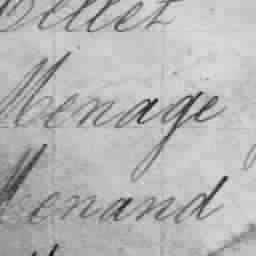 Menage
Menand